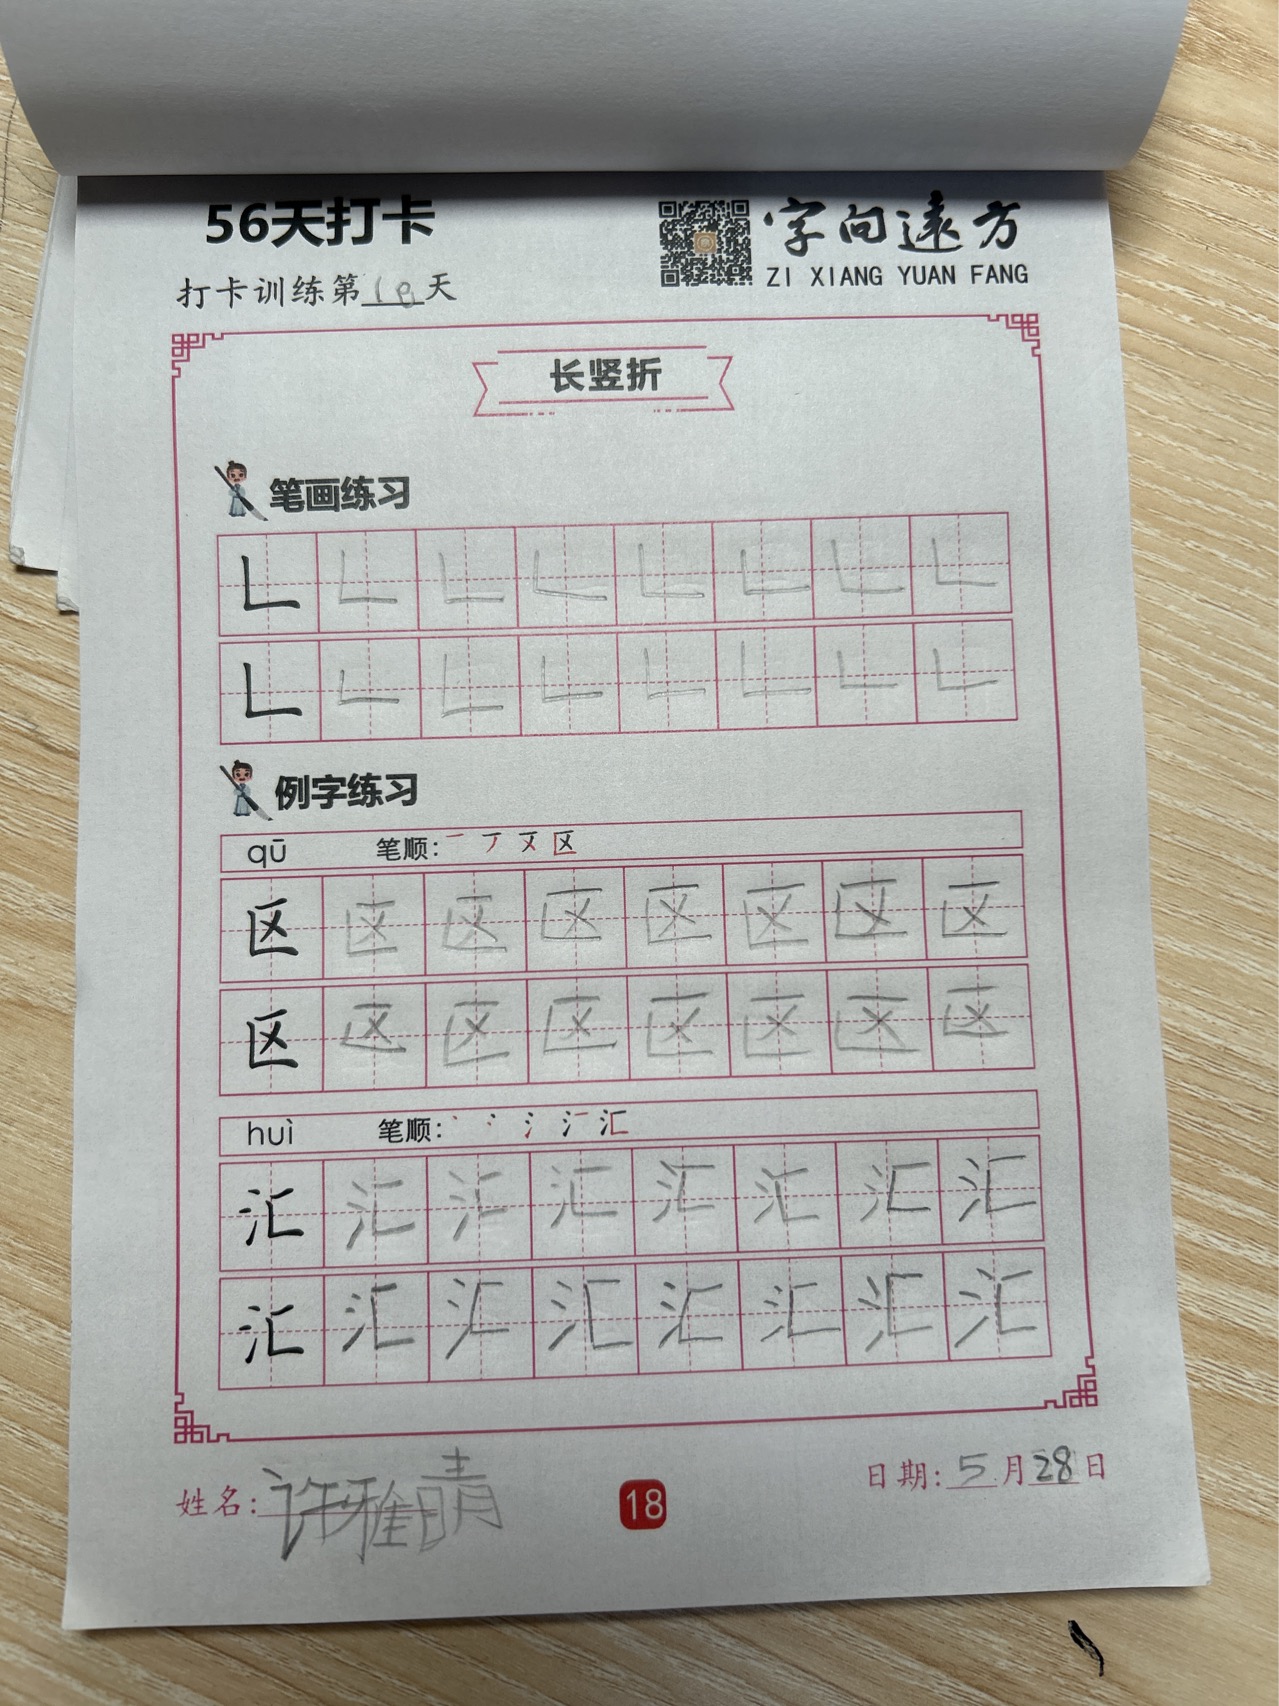 56天打卡
字向远方
ZI XIANG YUAN FANG
打卡训练第18天
长竖折
笔画练习
𠃊 𠃊 𠃊 𠃊 𠃊 𠃊 𠃊 𠃊
𠃊 𠃊 𠃊 𠃊 𠃊 𠃊 𠃊 𠃊
例字练习
qū 笔顺: 区
区 区 区 区 区 区 区 区
区 区 区 区 区 区 区 区
huì 笔顺: 汇
汇 汇 汇 汇 汇 汇 汇 汇
汇 汇 汇 汇 汇 汇 汇 汇
姓名: 许雅晴
18
日期: 5月28日